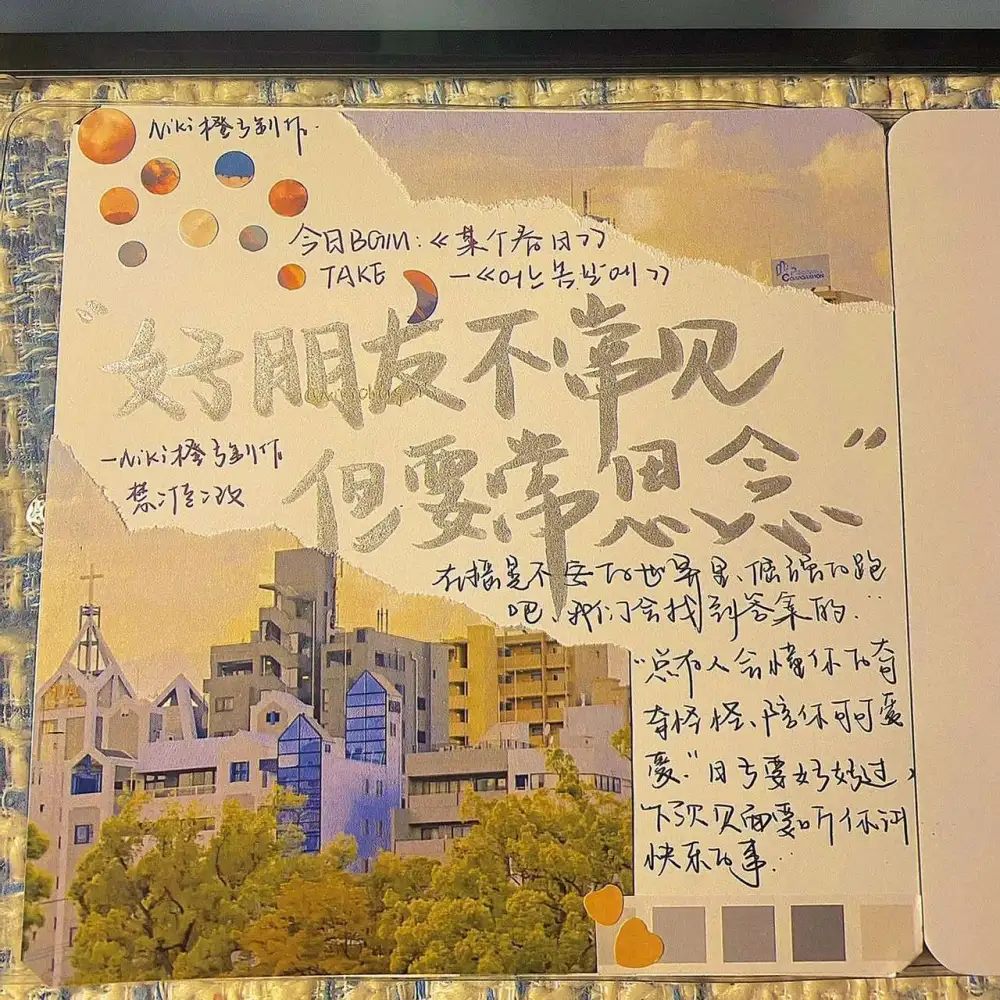 Niki橙子制作.
今日BGM:《某个春日》
TAKE —《어느 봄날에》
“好朋友不常见
但要常思念”
—Niki橙子制作
禁止盗改
在摇晃不安的世界里、倔强的跑
吧、我们会找到答案的.
“总有人会懂你的奇
奇怪怪、陪你可可爱
爱.”日子要好好过,
下次见面要听你讲
快乐的事.